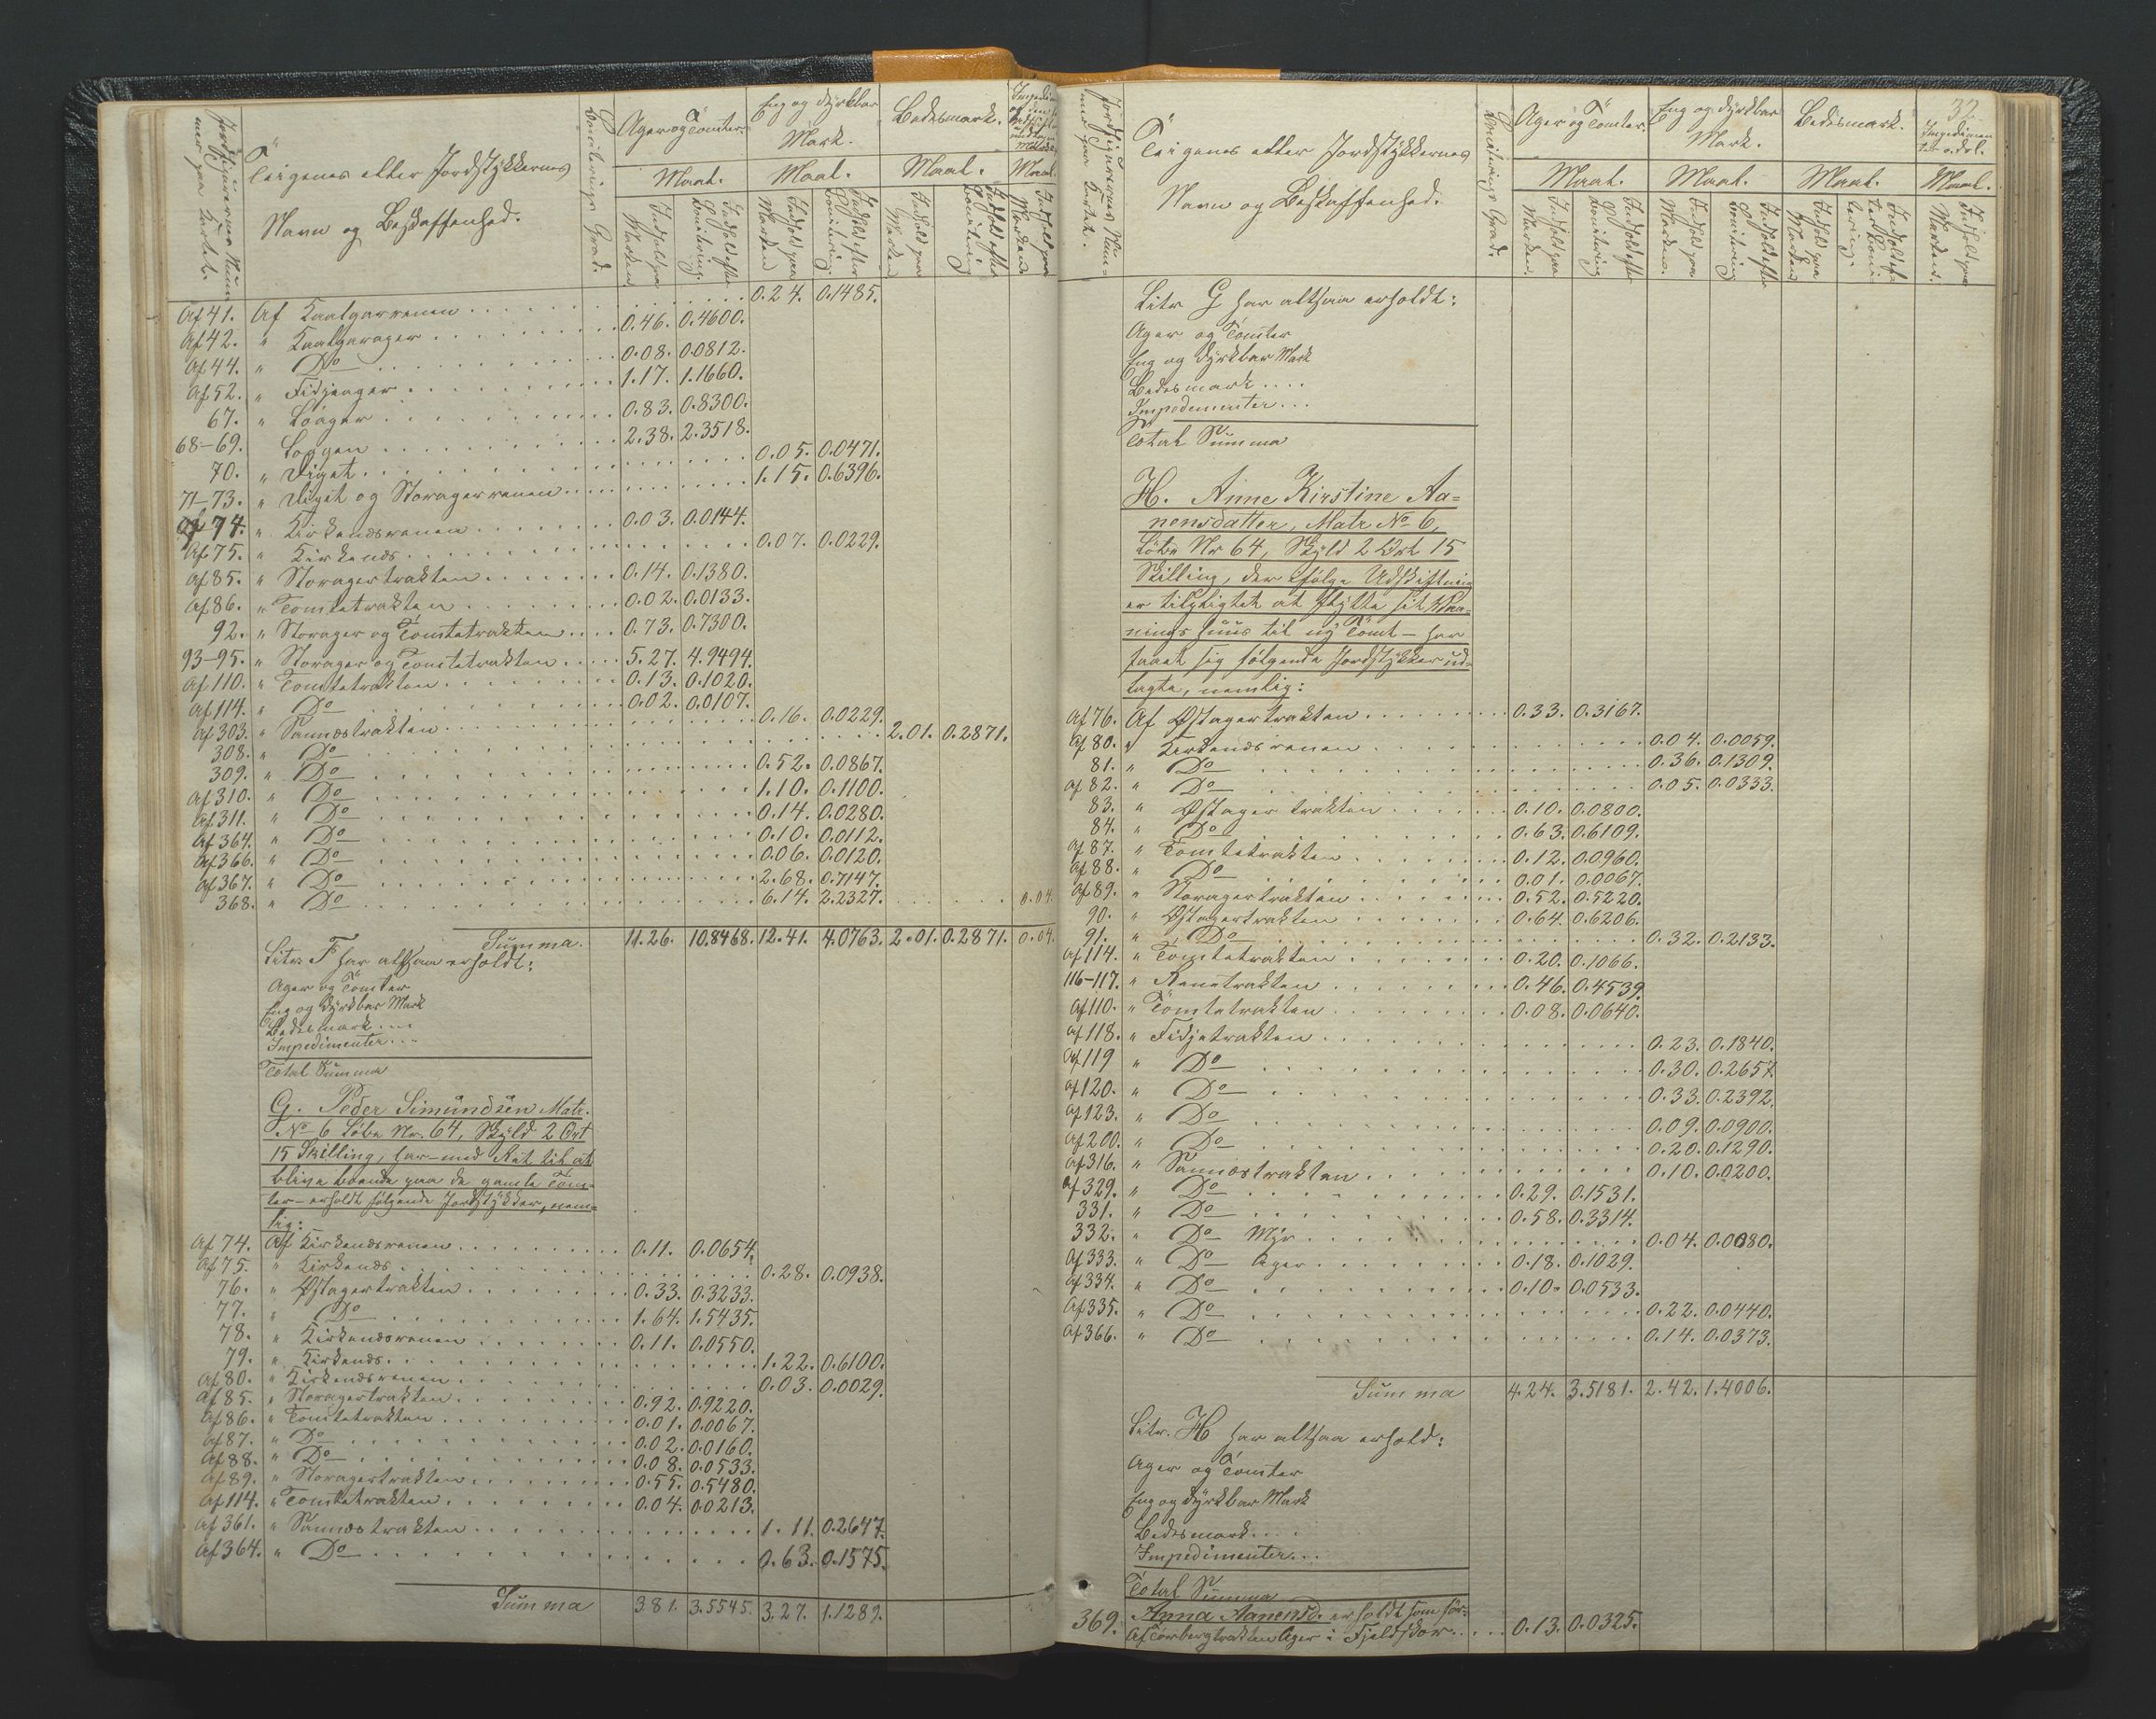 Teigenes eller Jordstykkernes
Navn og Beskaffenhed.
Ager og Tomter.
Maal.
Eng og dyrkbar
Mark.
Maal.
Bedesmark.
Maal.
Maal.
Af 41. Af Kaalgarrenen 0.24. 0.1485.
Af 42. " Kaalgarager 0.46. 0.4600.
Af 44. " Do 0.08. 0.0812.
Af 52. " Fidjeager 1.17. 1.1660.
67. " Loager 0.83. 0.8300.
68-69. Loagen 2.38. 2.3518.
70. " Diget 0.05. 0.0471.
71-73. " Diget og Storagerrenen 1.15. 0.6396.
Af 74. " Kirkenæsrenen 0.03. 0.0144.
Af 75. " Kirkenæs 0.07. 0.0229.
Af 85. " Storagertrakten 0.14. 0.1380.
Af 86. " Tomtetrakten 0.02. 0.0133.
92. " Storager og Tomtetrakten 0.73. 0.7300.
93-95. " Storager og Tomtetrakten 5.27. 4.9494.
Af 110. " Tomtetrakten 0.13. 0.1020.
Af 114. " Do 0.02. 0.0107.
Af 303. " Sannæstrakten 0.16. 0.0229.
308. " Do 2.01. 0.2871.
309. " Do 0.52. 0.0867.
Af 310. " Do 1.10. 0.1100.
Af 311. " Do 0.14. 0.0280.
Af 364. " Do 0.10. 0.0112.
Af 366. " Do 0.06. 0.0120.
Af 367. " Do 2.68. 0.7147.
368. " Do 6.14. 2.2327. 0.04.
Summa. 11.26. 10.8468. 12.41. 4.0763. 2.01. 0.2871. 0.04.
Litr. F har altsaa erholdt:
Ager og Tomter
Eng og dyrkbar Mark
Bedesmark
Impedimenter
Total Summa
G. Peder Simundsen Matr.
No 6 Løbe Nr. 64, Skyld 2 Ort
15 Skilling, har - med Ret til at
blive boende paa de gamle Tom-
ter - erholdt følgende Jordstykker, nem-
lig:
Af 74. Af Kirkenæsrenen 0.11. 0.0654.
Af 75. " Kirkenæs 0.28. 0.0938.
76. " Østagertrakten 0.33. 0.3233.
77. " Do 1.64. 1.5435.
78. " Kirkenæsrenen 0.11. 0.0550.
79. " Kirkenæs 1.22. 0.6100.
Af 80. " Kirkenæsrenen 0.03. 0.0029.
Af 85. " Storagertrakten 0.92. 0.9220.
Af 86. " Tomtetrakten 0.01. 0.0067.
Af 87. " Do 0.02. 0.0160.
Af 88. " Do 0.08. 0.0533.
Af 89. " Storagertrakten 0.55. 0.5480.
Af 114. " Tomtetrakten 0.04. 0.0213.
Af 361. " Sannæstrakten 1.11. 0.2647.
Af 364. " Do 0.63. 0.1575.
Summa 3.81. 3.5545. 3.27. 1.1289.
32
Teigenes eller Jordstykkernes
Navn og Beskaffenhed.
Boniterings Grad.
Ager og Tomter.
Maal.
Eng og dyrkbar
Mark.
Maal.
Bedesmark.
Maal.
Impedimen
Maal.
Litr G har altsaa erholdt:
Ager og Tomter
Eng og dyrkbar Mark
Bedesmark
Impedementer
Total Summa
H. Anne Kirstine Aa-
nensdatter, Matr No 6,
Løbe Nr 64, Skyld 2 Ort 15
Skilling, der ifølge Udskiftning
er tilpligtet at flytte sit Vaa-
ningshuus til ny Tomt - har
faaet sig følgende Jordstykker ud-
lagte, nemlig:
Af 76. Af Østagertrakten 0.33. 0.3167.
Af 80. " Kirkenæsrenen 0.04. 0.0059.
81. " Do 0.36. 0.1309.
Af 82. " Do 0.05. 0.0333.
83. " Østagertrakten 0.10. 0.0800.
84. " Do 0.63. 0.6109.
Af 87. " Tomtetrakten 0.12. 0.0960.
Af 88. " Do 0.01. 0.0067.
Af 89. " Storagertrakten 0.52. 0.5220.
90. " Østagertrakten 0.64. 0.6206.
91. " Do 0.32. 0.2133.
Af 114. " Tomtetrakten 0.20. 0.1066.
116-117. " Renetrakten 0.46. 0.4539.
Af 110. " Tomtetrakten 0.08. 0.0640.
Af 118. " Fidjetrakten 0.23. 0.1840.
Af 119 " Do 0.30. 0.2657.
Af 120. " Do 0.33. 0.2392.
Af 123. " Do 0.09. 0.0900.
Af 200. " Do 0.20. 0.1290.
Af 316. " Sannæstrakten 0.10. 0.0200.
Af 329. " Do 0.29. 0.1531.
331. " Do 0.58. 0.3314.
332. " Do Myr 0.04. 0.0080.
Af 333. " Do Ager 0.18. 0.1029.
Af 334. " Do 0.10. 0.0533.
Af 335. " Do 0.22. 0.0440.
Af 366. " Do 0.14. 0.0373.
Summa 4.24. 3.5181. 2.42. 1.4006.
Litr. H har altsaa erhold:
Ager og Tomter
Eng og dyrkbar Mark
Bedesmark
Impedimenter
Total Summa
Anna Aanensd. erholdt som før:
369. Af Torbergtrakten Ager i Fjeldskor 0.13. 0.0325.